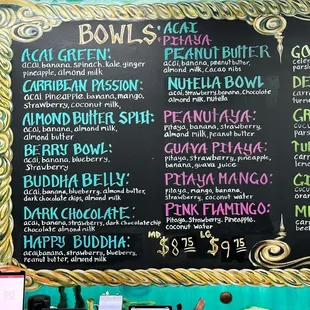 BOWLS:
ACAI
PITAYA
ACAI GREEN:
acai, banana, spinach, kale, ginger
pineapple, almond milk
CARRIBEAN PASSION:
acai, pineapple, banana, mango,
strawberry, coconut milk,
ALMOND BUTTER SPLIT:
acai, banana, almond milk,
almond butter
BERRY BOWL:
acai, banana, blueberry,
strawberry
BUDDHA BELLY:
acai, banana, blueberry, almond butter,
dark chocolate chips, almond milk
DARK CHOCOLATE:
acai, banana, strawberry, dark chocolate chips
Chocolate almond milk
HAPPY BUDDHA:
acai, banana, strawberry, blueberry,
peanut butter, almond milk
PEANUT BUTTER
acai, banana, peanut butter,
almond milk, cacao nibs
NUTELLA BOWL
acai, strawberry, banana, Chocolate
almond milk, nutella
PEANUTAYA:
pitaya, banana, strawberry,
almond milk, peanut butter
GUAVA PITAYA:
pitaya, strawberry, pineapple,
banana, guava juice
PITAYA MANGO:
pitaya, mango, banana,
strawberry, coconut water
PINK FLAMINGO:
pitaya, Strawberry, Pineapple,
coconut water
MD $8.75 LG $9.75